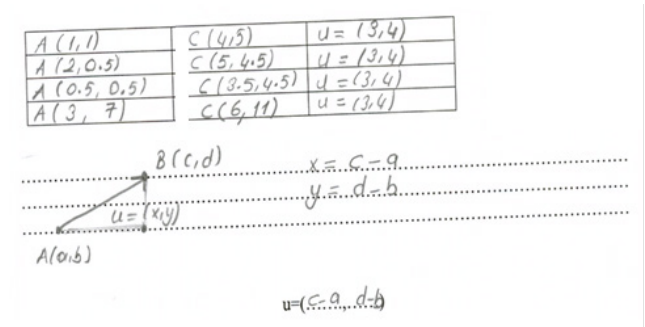 A(1,1) C(4,5) u=(3,4)
A(2,0.5) C(5,4.5) u=(3,4)
A(0.5, 0.5) C(3.5,4.5) u=(3,4)
A(3, 7) C(6,11) u=(3,4)
B(c,d) x= c-a
y= d-b
u=(x,y)
A(a,b)
u=(c-a, d-b)